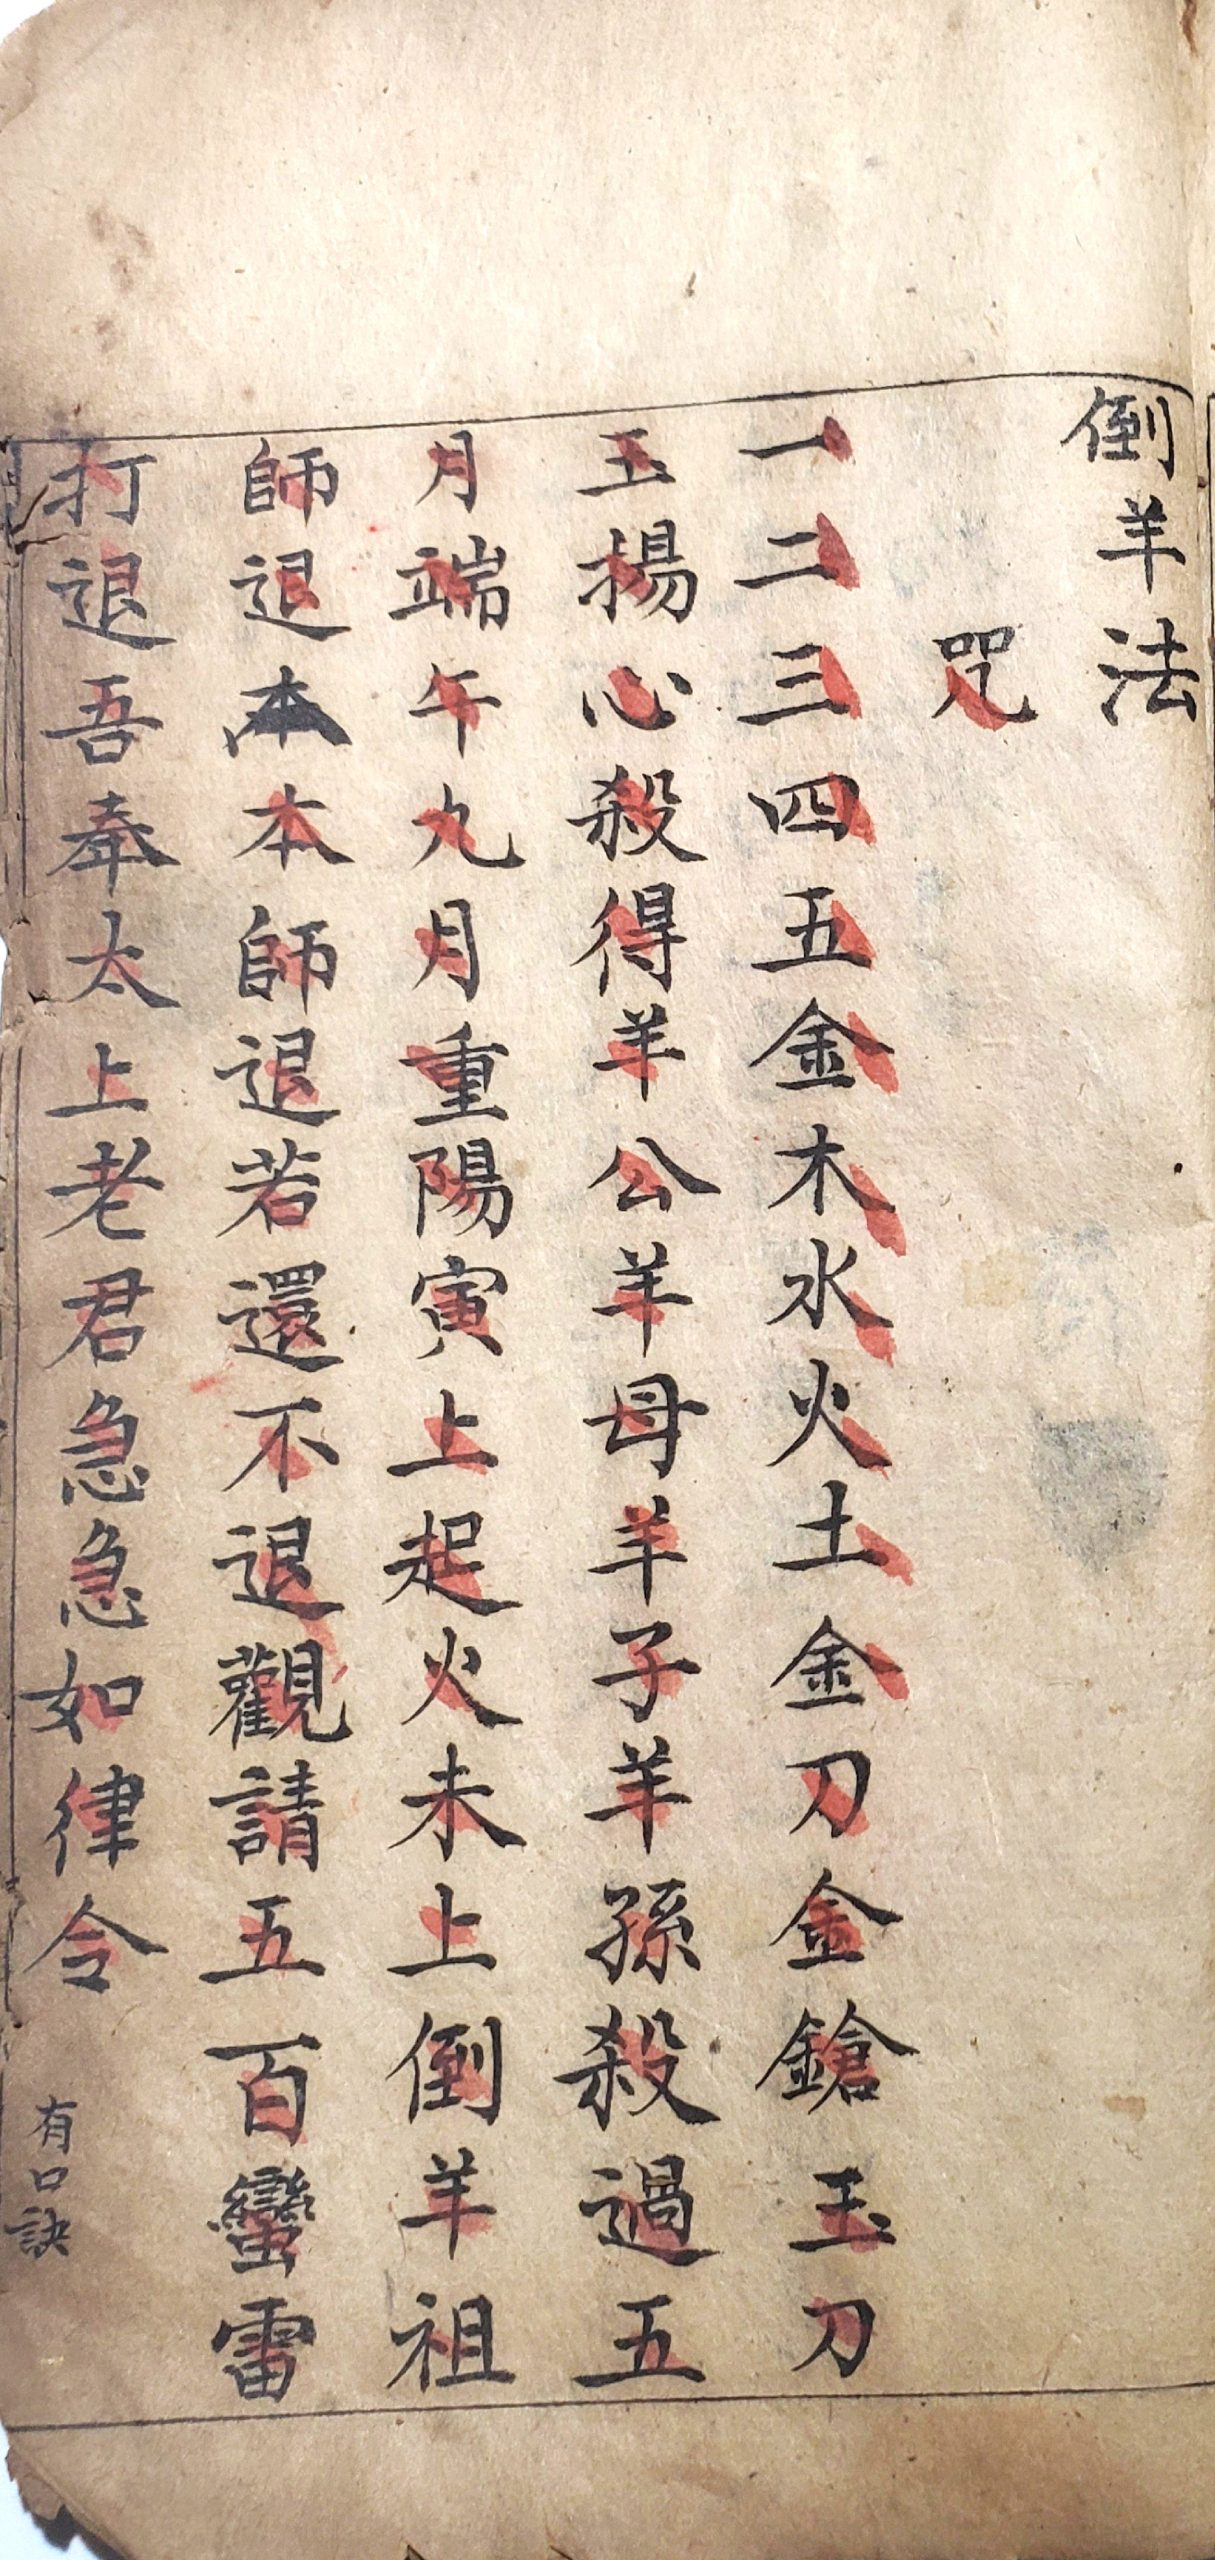 倒羊法
咒
一二三四五金木水火土金刀金鎗玉刀
玉揚心殺得羊公羊母羊子羊孫殺過五
月端午九月重陽寅上起火未上倒羊祖
師退本本師退若還不退觀請五百蠻雷
打退吾奉太上老君急急如律令
有口訣